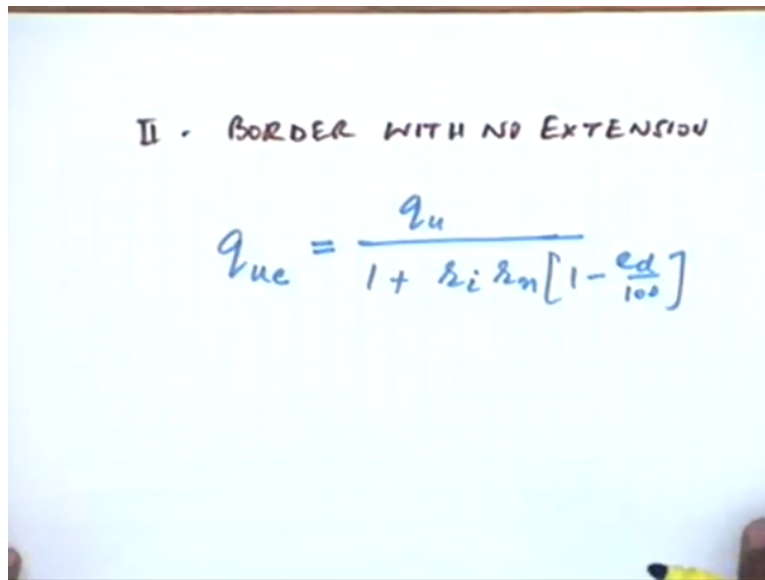 II. BORDER WITH NO EXTENSION
q_ue = q_u / (1 + r_i r_n [1 - e_d/100])